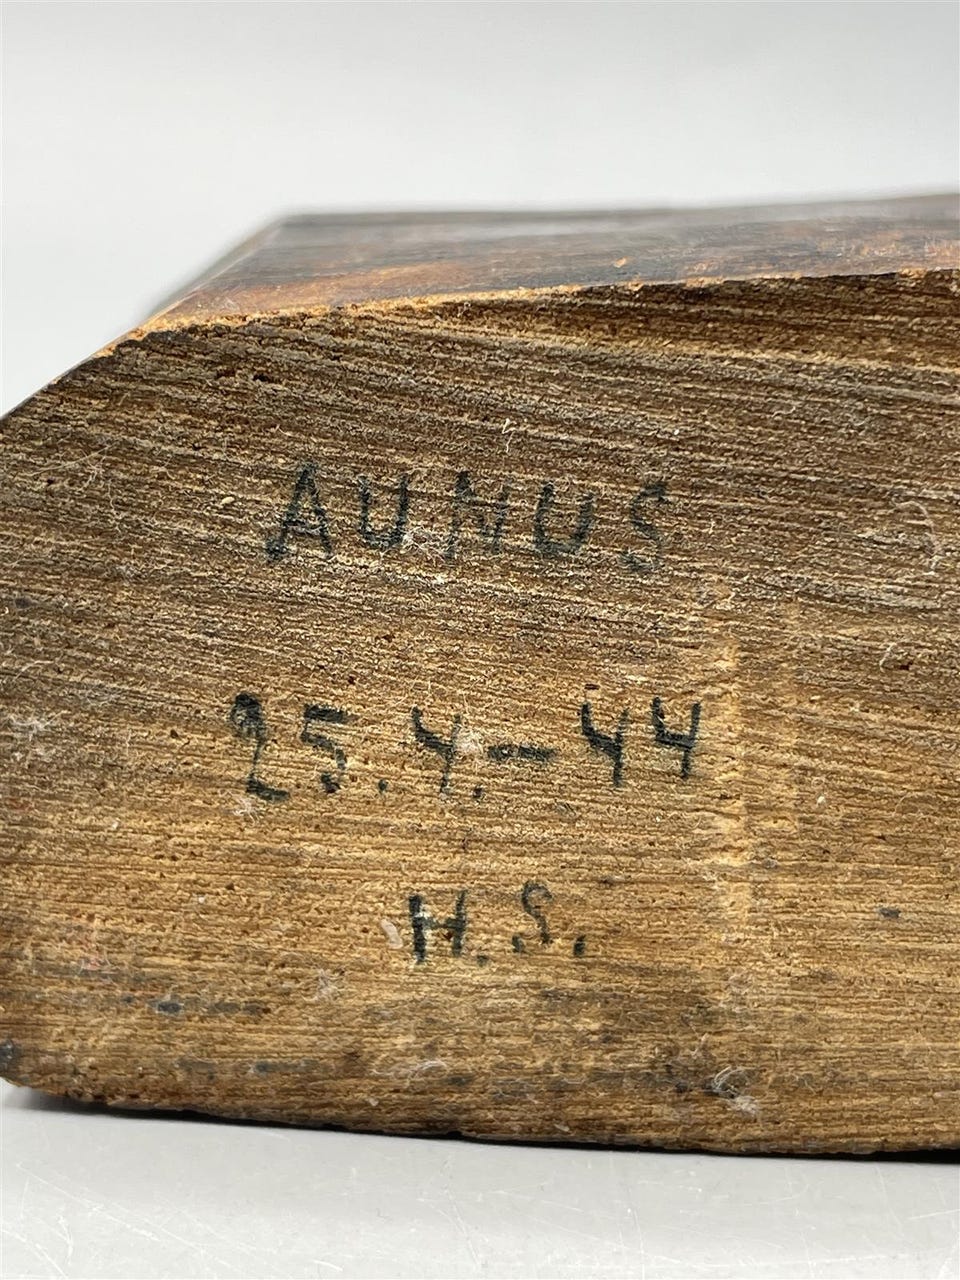 AUNUS
25.4.-44
H.S.